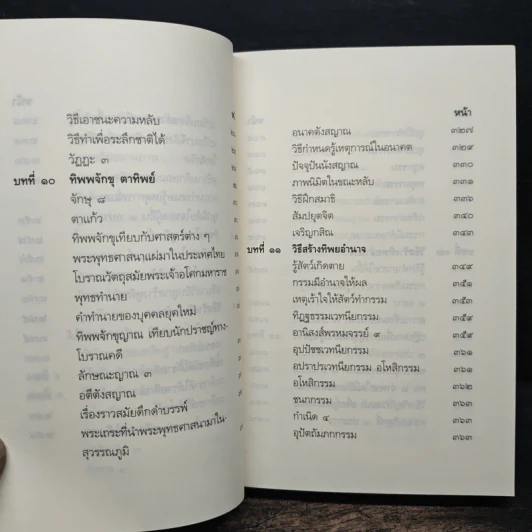 วิธีเอาชนะความหลับ
วิธีทำเพื่อระลึกชาติได้
วัฏฏะ ๓
บทที่ ๑๐ ทิพพจักขุ ตาทิพย์
จักษุ ๘
ตาแก้ว
ทิพพจักขุเทียบกับศาสตร์ต่าง ๆ
พระพุทธศาสนาแผ่มาในประเทศไทย
โบราณวัตถุสมัยพระเจ้าอโศกมหาราช
พุทธทำนาย
คำทำนายของบุคคลยุคใหม่
ทิพพจักขุญาณ เทียบนักปราชญ์ทาง-
โบราณคดี
ลักษณะญาณ ๓
อตีตังสญาณ
เรื่องราวสมัยดึกดำบรรพ์
พระเถระที่นำพระพุทธศาสนามาใน-
สุวรรณภูมิ
หน้า
อนาคตังสญาณ ๓๒๗
วิธีกำหนดรู้เหตุการณ์ในอนาคต ๓๒๙
ปัจจุปันนังสญาณ ๓๓๐
ภาพนิมิตในขณะหลับ ๓๓๑
วิธีฝึกสมาธิ ๓๓๖
สัมปยุตจิต ๓๔๐
เจริญกสิณ ๓๔๓
บทที่ ๑๑ วิธีสร้างทิพยอำนาจ
รู้สัตว์เกิดตาย ๓๔๙
กรรมมีอำนาจให้ผล ๓๕๑
เหตุเร้าใจให้สัตว์ทำกรรม ๓๕๓
ทิฏฐธรรมเวทนียกรรม ๓๕๙
อานิสงส์พรหมจรรย์ ๙ ๓๕๙
อุปปัชชเวทนียกรรม ๓๖๑
อปราปรเวทนียกรรม อโหสิกรรม ๓๖๑
อโหสิกรรม ๓๖๒
ชนกกรรม ๓๖๓
กำเนิด ๔ ๓๖๓
อุปัตถัมภกกรรม ๓๖๓